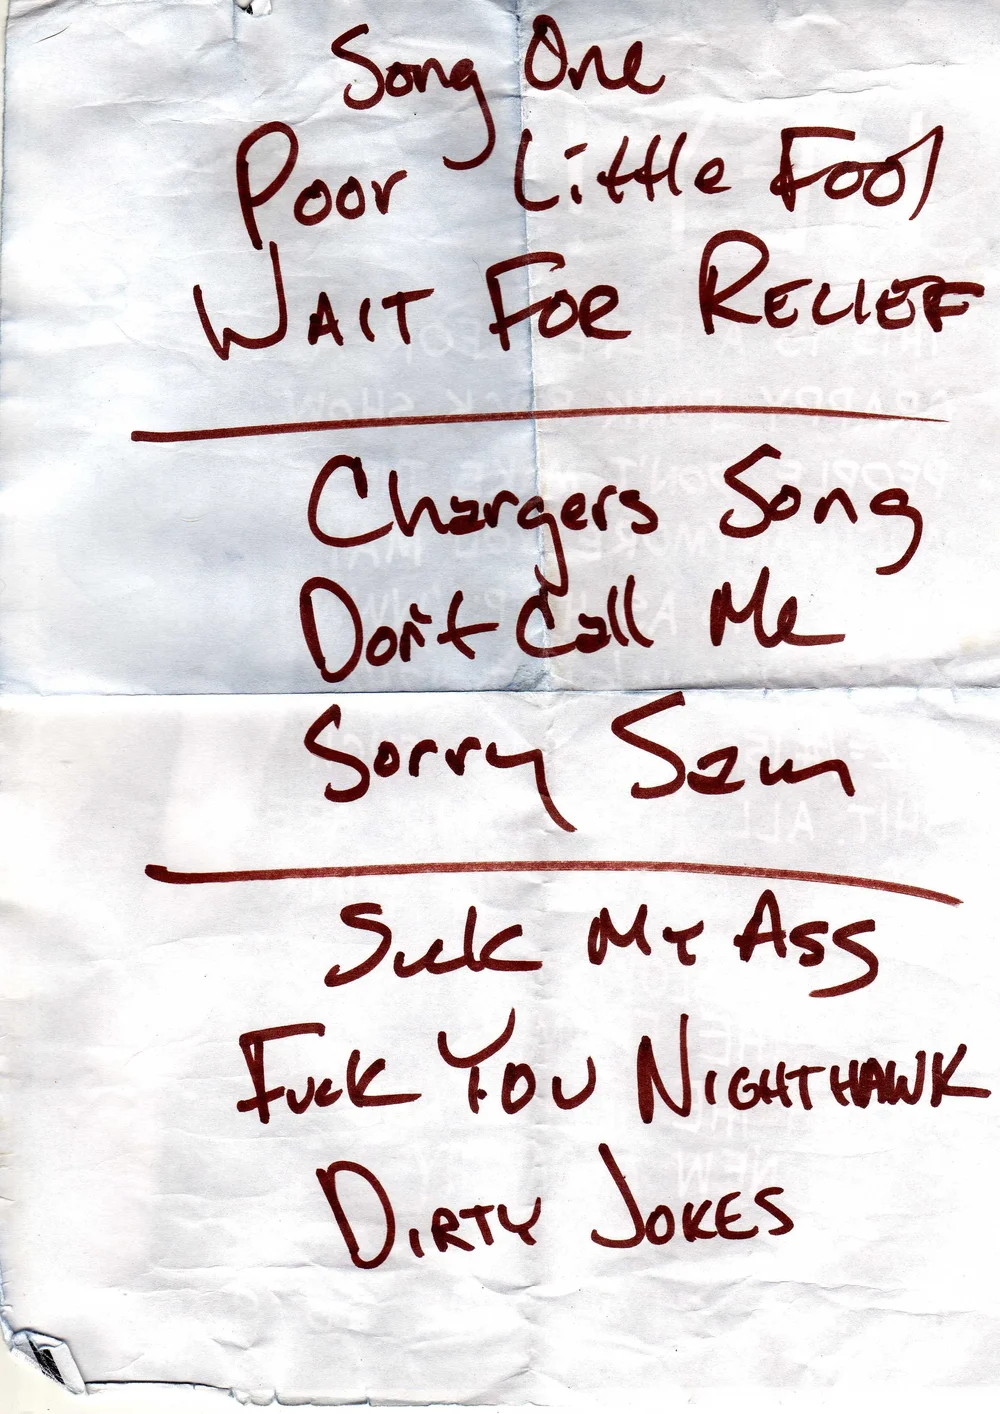 Song One
Poor Little Fool
WAIT FOR RELIEF
Chargers Song
Don't Call Me
Sorry Sam
Suck My Ass
FUCK YOU NIGHTHAWK
DIRTY JOKES